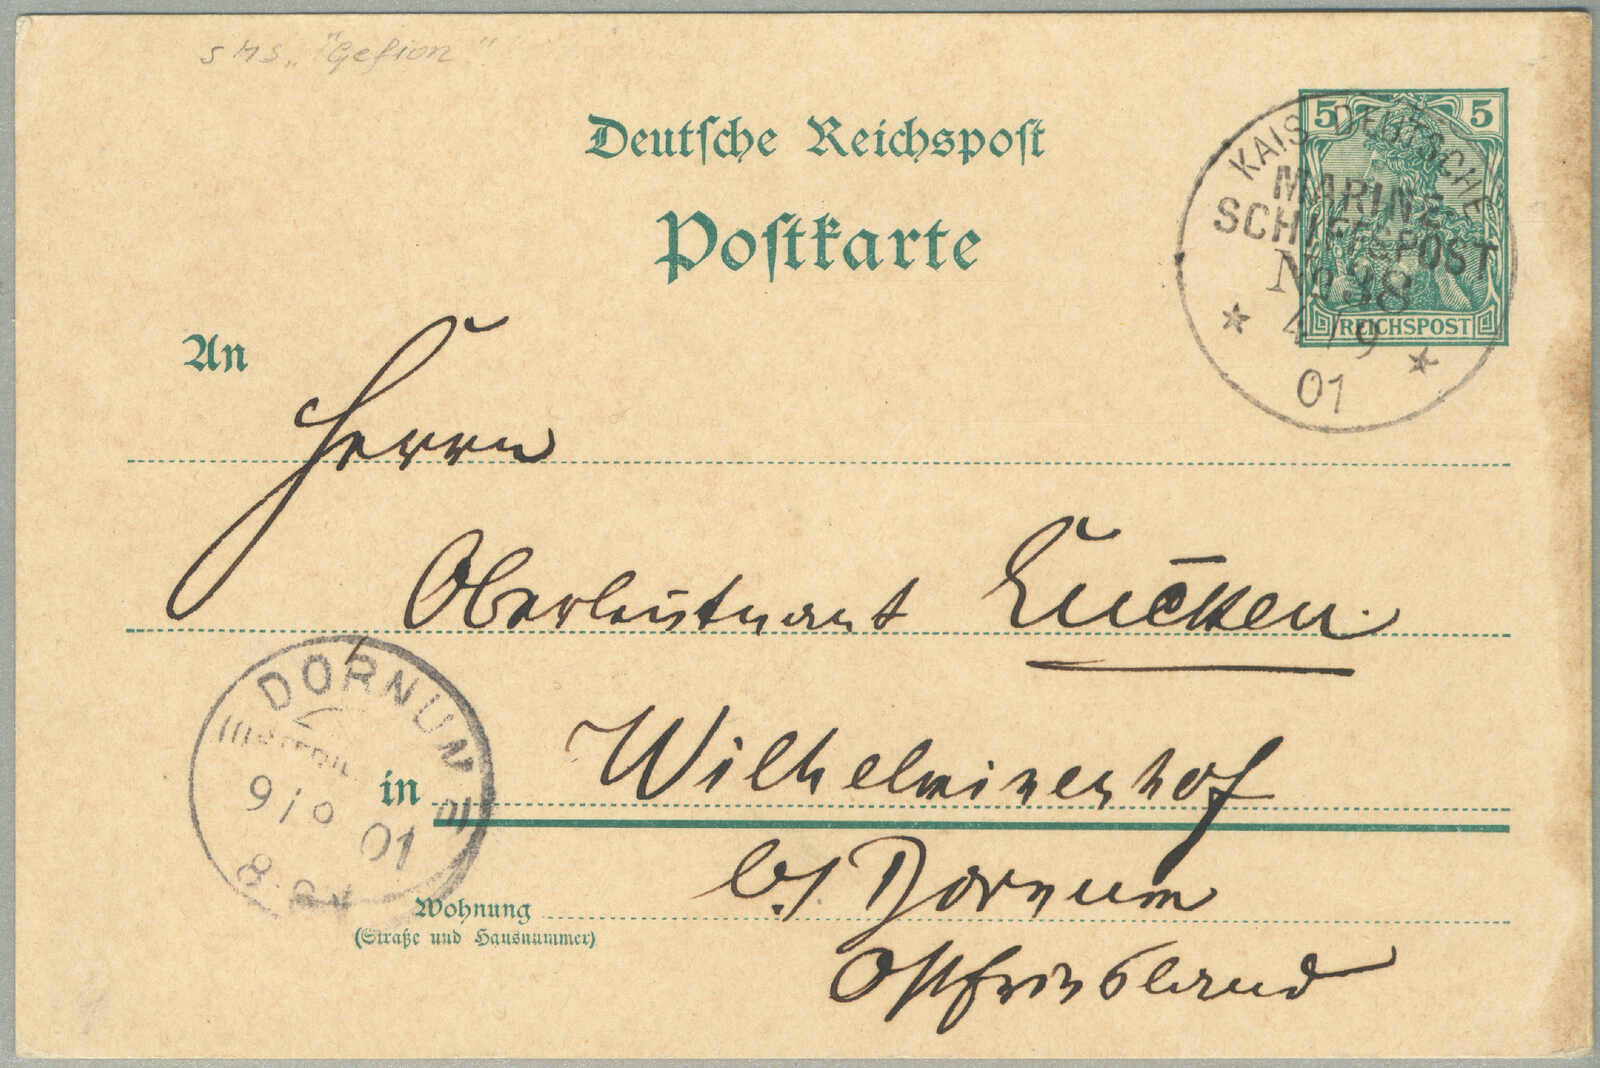 SMS „"Gefion"
Deutsche Reichspost
Postkarte
5 5
REICHSPOST
KAIS. DEUTSCHE
MARINE
SCHIFFSPOST
No 38
* 4/9 *
01
An
Herrn
Oberleutnant Lücken.
in Wilhelminenhof
b/ Dornum
Ostfriesland
Wohnung
(Straße und Hausnummer)
DORNUM
9/9 01